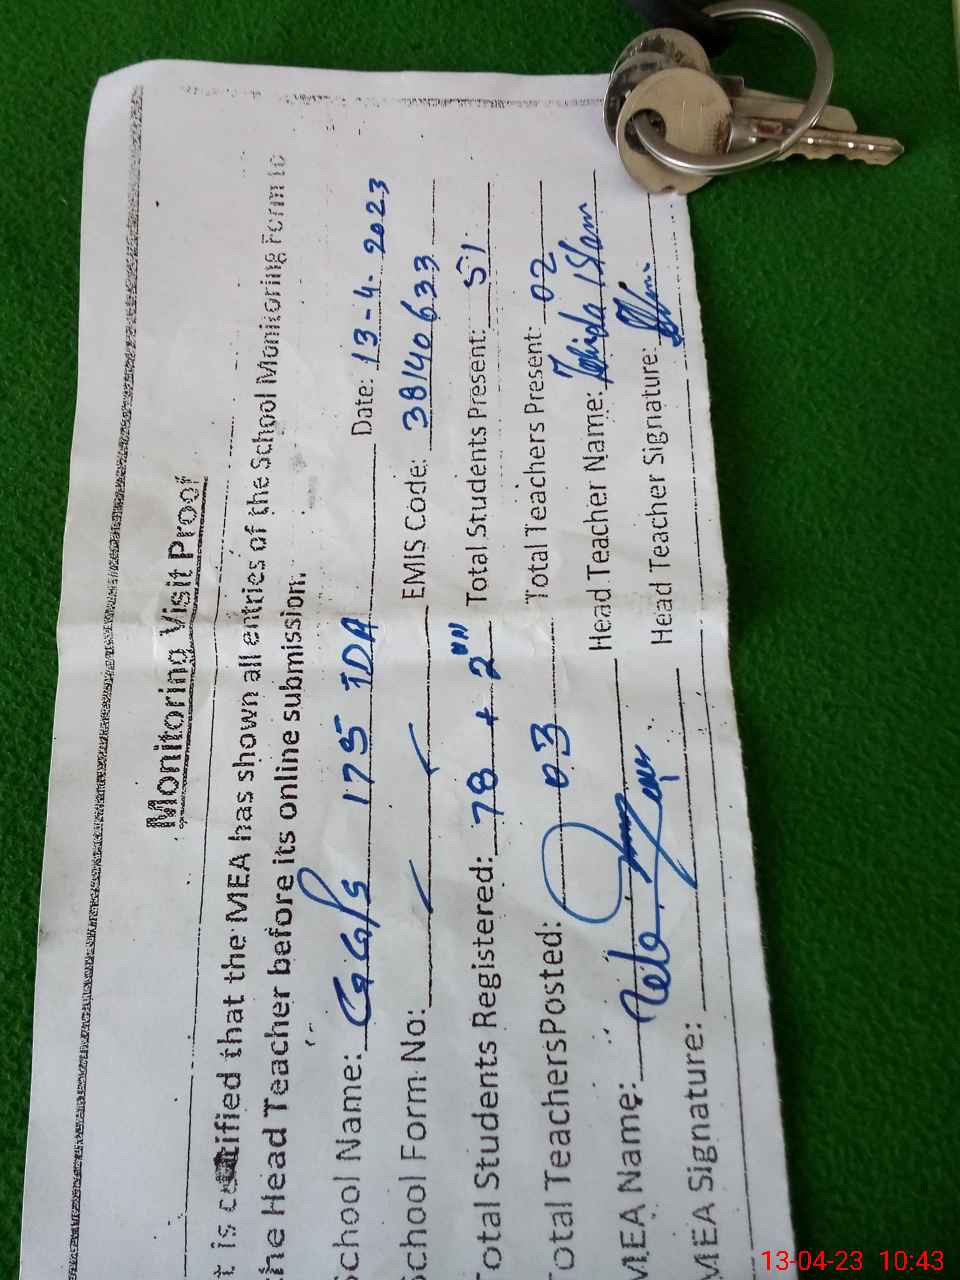 Monitoring Visit Proof
t is certified that the MEA has shown all entries of the School Monitoring Form to
he Head Teacher before its online submission.
School Name: GGPS 175 TDA Date: 13-4-2023
School Form No: EMIS Code: 38140633
Total Students Registered: 78 + 2 Total Students Present: 51
Total TeachersPosted: 03 Total Teachers Present: 02
MEA Name: Head Teacher Name:
MEA Signature: Head Teacher Signature:
13-04-23 10:43